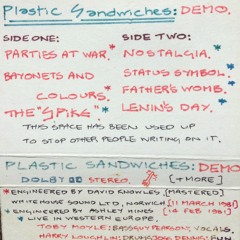 Plastic Sandwiches: DEMO.
SIDE ONE:
PARTIES AT WAR. *
BAYONETS AND
COLOURS. *
THE "SPIKE"
SIDE TWO:
* NOSTALGIA.
* STATUS SYMBOL.
* FATHER'S WOMB.
* LENIN'S DAY.
THIS SPACE HAS BEEN USED UP
TO STOP OTHER PEOPLE WRITING ON IT.
PLASTIC SANDWICHES: DEMO
DOLBY STEREO. [+ MORE]
* ENGINEERED BY DAVID KNOWLES [MASTERED]
WHITE HOUSE SOUND LTD, NORWICH. [11 MARCH 1981]
* ENGINEERED BY ASHLEY HINES [14 FEB 1981]
* LIVE IN WESTERN EUROPE.
TOBY MOYLE: BASS, VOCALS.
HARRY LOUGHLIN: DRUMS,